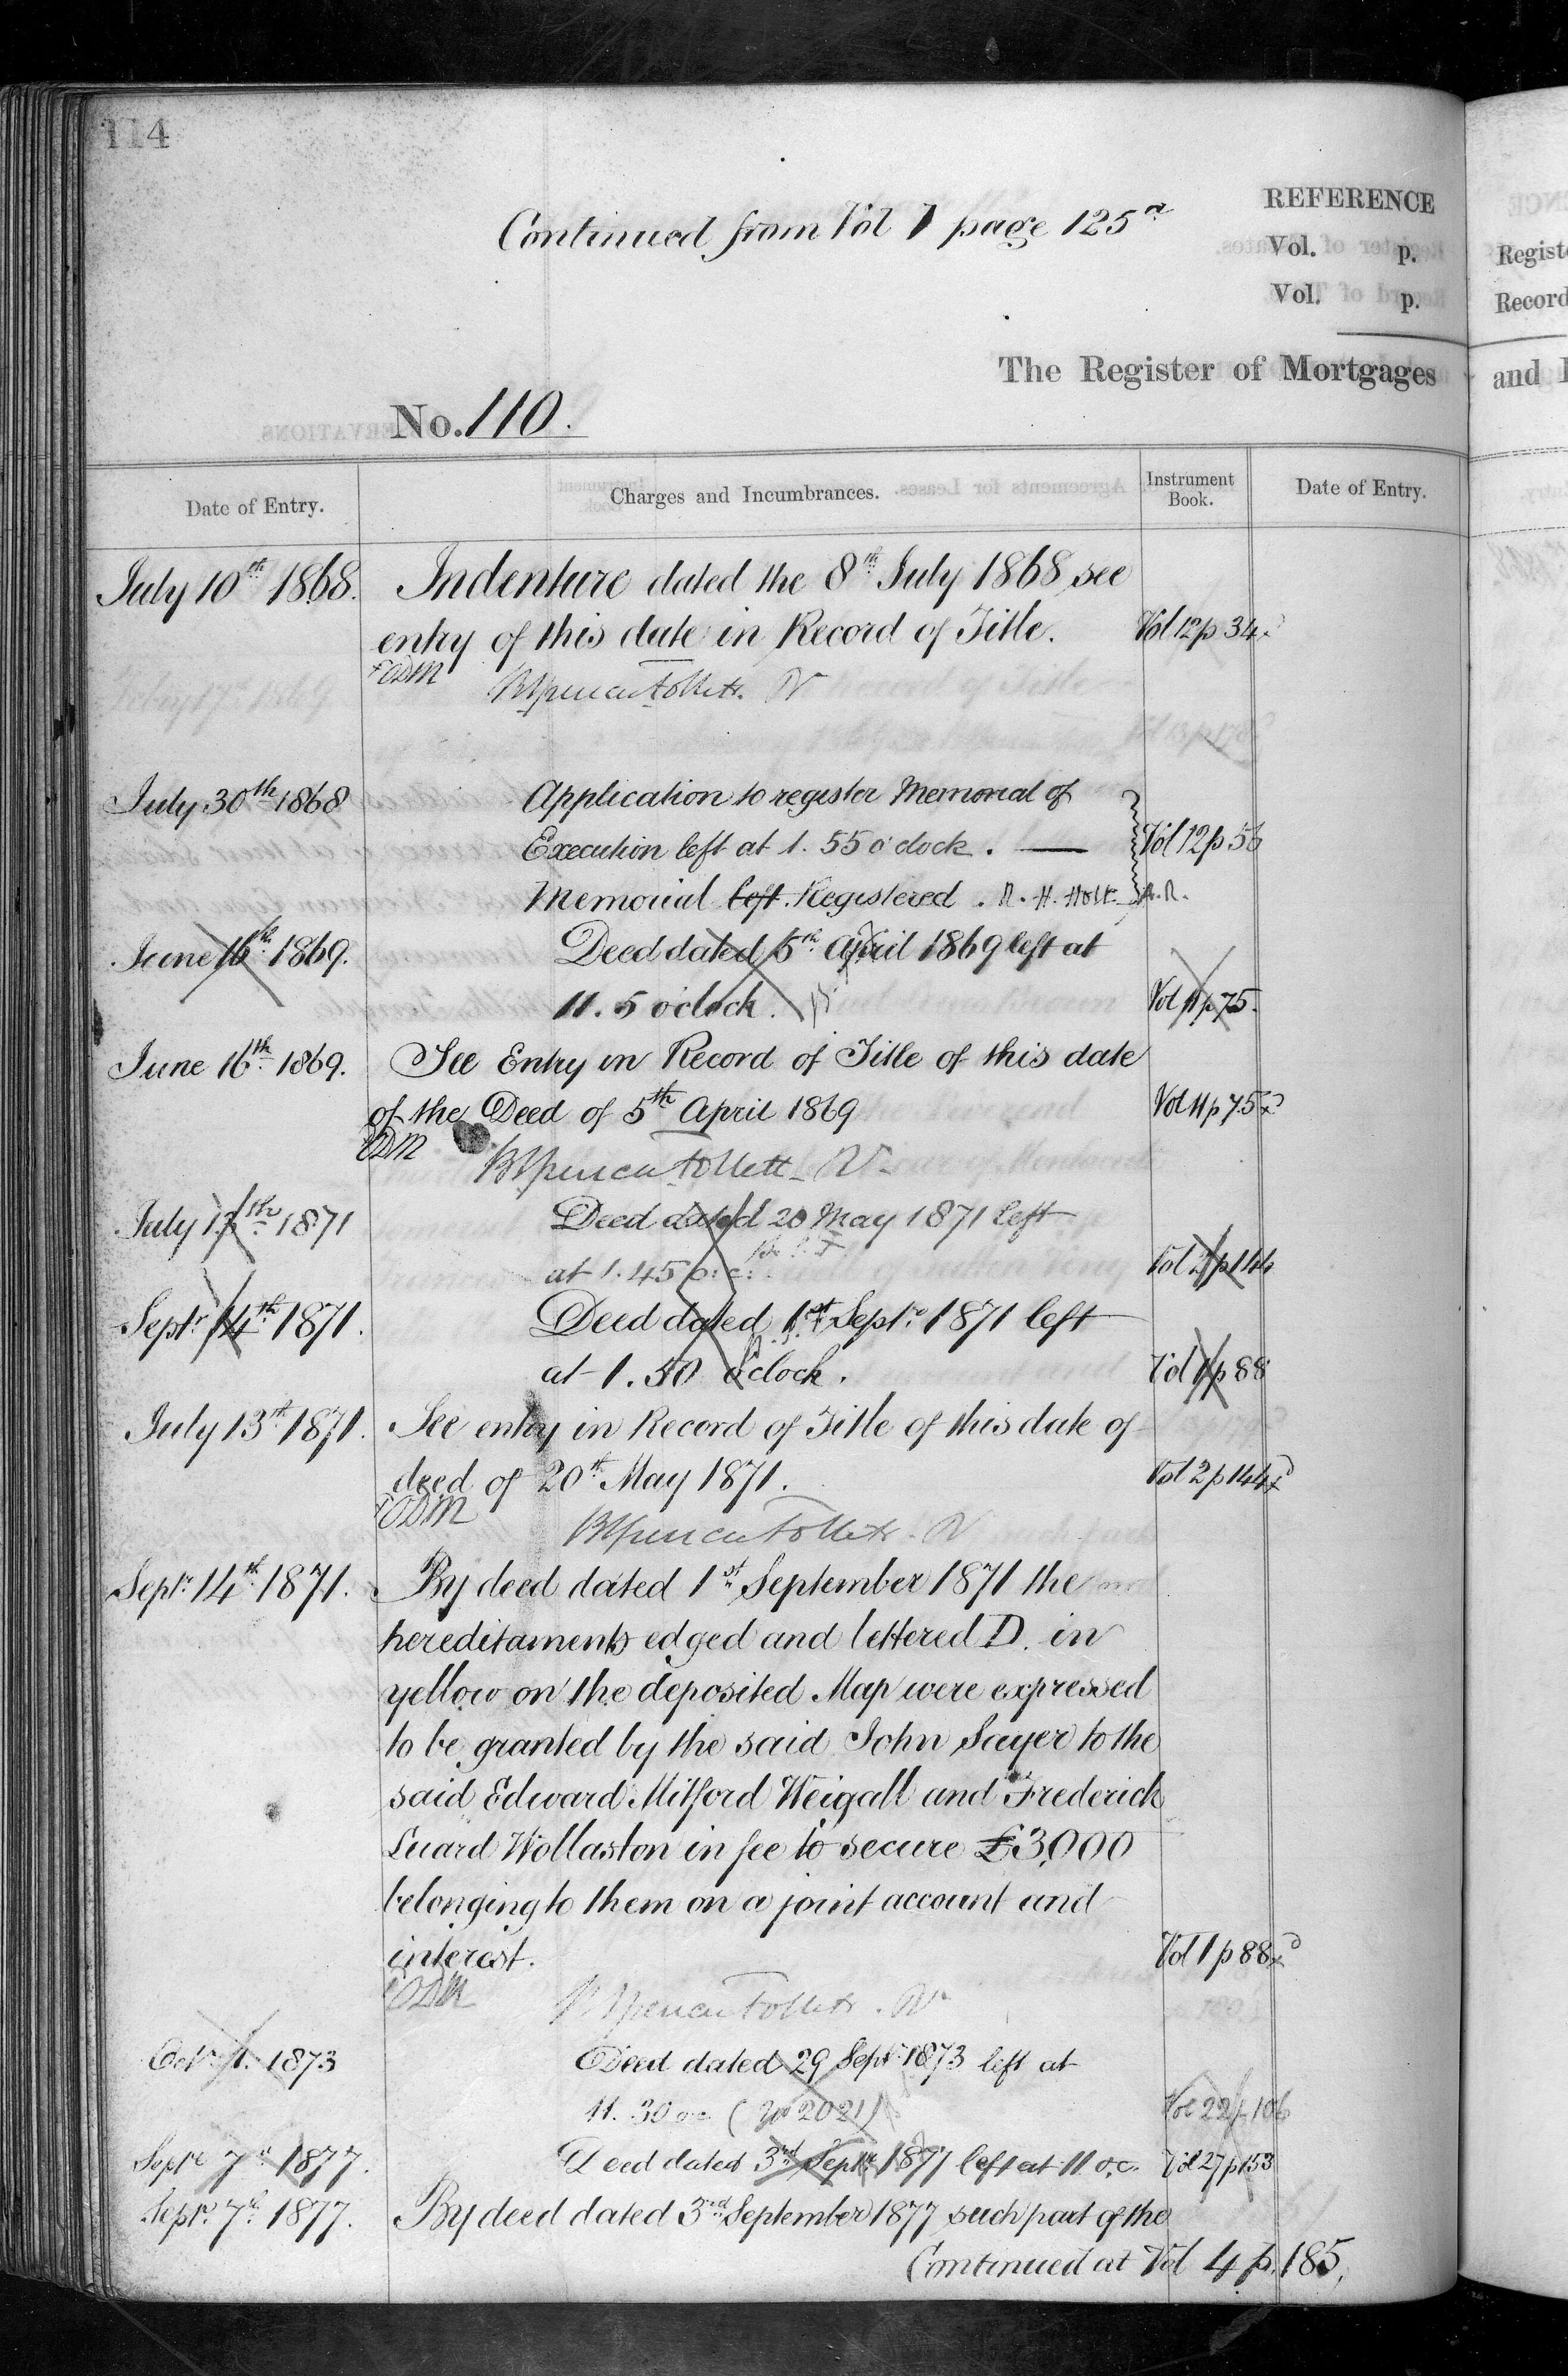 114
Continued from Vol 1 page 125a
REFERENCE
Vol. p.
Vol. p.
The Register of Mortgages
No. 110.
Date of Entry. Charges and Incumbrances. Instrument Book. Date of Entry.
July 10th 1868. Indenture dated the 8th July 1868 see
entry of this date in Record of Title. Vol 12 p 34
ODM
July 30th 1868 Application to register Memorial of
Execution left at 1.55 o'clock. Vol 12 p 56
Memorial left. Registered. R. H. Holt.
June 16th 1869. Deed dated 5th April 1869 left at
11.5 o'clock. Vol 11 p 75.
June 16th 1869. See Entry in Record of Title of this date
of the Deed of 5th April 1869 Vol 11 p 75
ODM
July 13th 1871 Deed dated 20 May 1871 left
at 1.45 o.c. Vol 2 p 144
Septr 14th 1871. Deed dated 1st Septr 1871 left
at 1.50 o'clock. Vol 1 p 88
July 13th 1871. See entry in Record of Title of this date of
deed of 20th May 1871. Vol 2 p 144
ODM
Septr 14th 1871. By deed dated 1st September 1871 the
hereditaments edged and lettered D. in
yellow on the deposited Map were expressed
to be granted by the said John Sayer to the
said Edward Mitford Weigall and Frederick
Luard Wollaston in fee to secure £3,000
belonging to them on a joint account and
interest. Vol 1 p 88
ODM
Octr 1. 1873 Deed dated 29 Septr 1873 left at
11.30 o.c. (No 2021) Vol 22 p 106
Septr 7th 1877. Deed dated 3rd Septr 1877 left at 11 o.c. Vol 27 p 153
Septr 7th 1877. By deed dated 3rd September 1877 such part of the
Continued at Vol 4 p. 185,
REFERENCE
Regist
Record
and